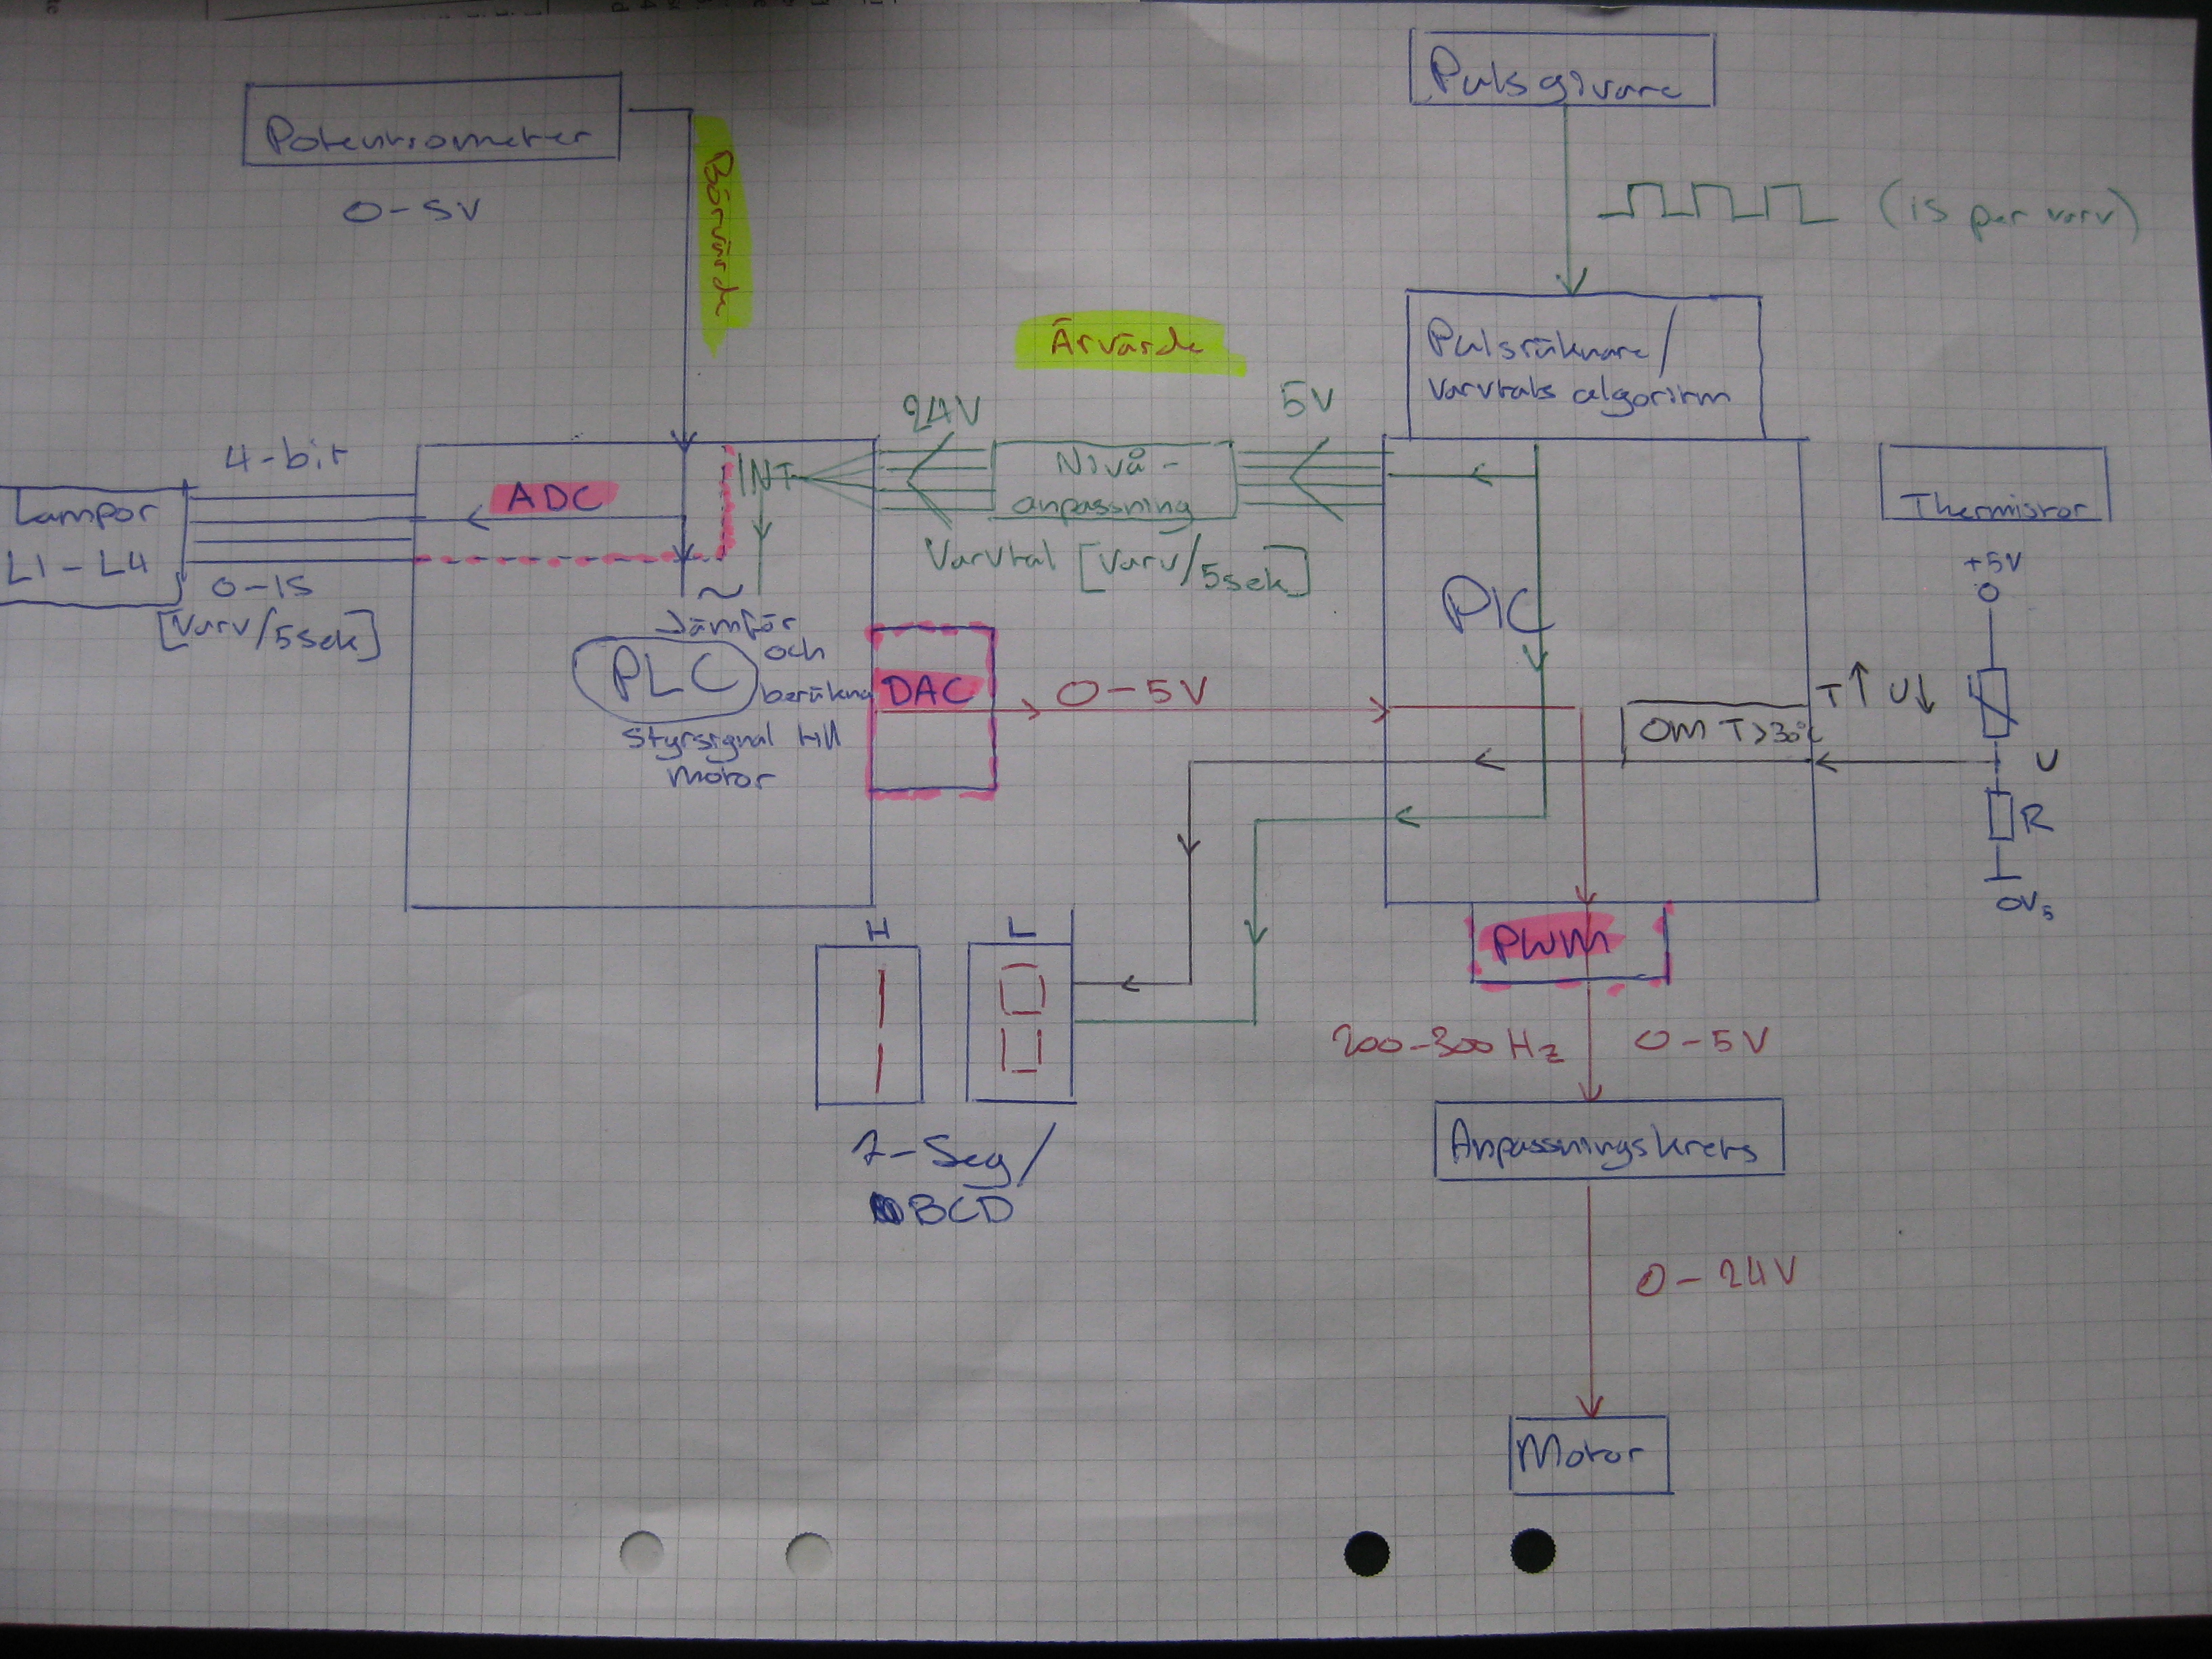 Pulsgivare
Potentiometer
0-5V
Börvärde
(15 per varv)
Pulsräknare/
varvtals algoritm
Ärvärde
24V
5V
4-bit
ADC
INT
Nivå-
anpassning
Thermistor
Lampor
L1-L4
0-15
[Varv/5sek]
Varvtal [Varv/5sek]
+5V
PIC
Jämför
och
PLC
beräkna
styrsignal till
motor
DAC
0-5V
T↑ U↓
OM T>30°C
U
R
0V5
H
L
PWM
200-300 Hz
0-5V
7-Seg/
BCD
Anpassningskrets
0-24V
Motor